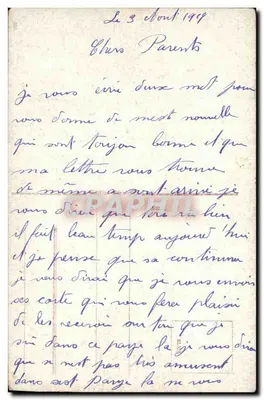 Le 3 Aout 19
Chers Parents
je vous écri deux mot pour
vous donne de mest nouvelle
qui sont toujou bonne et que
ma lettre vous trouve
de même a sont arivé je
vous dirai que tout va bien
il fait beau temp aujourd'hui
et je pense que sa continura
je vous dirai que je vous envois
ses carte qui vous fera plaisi
de les recevoir sur tou que je
sui dans ce paye la je vous dirai
que se nest pas très amusent
dans set Paye la ne vous